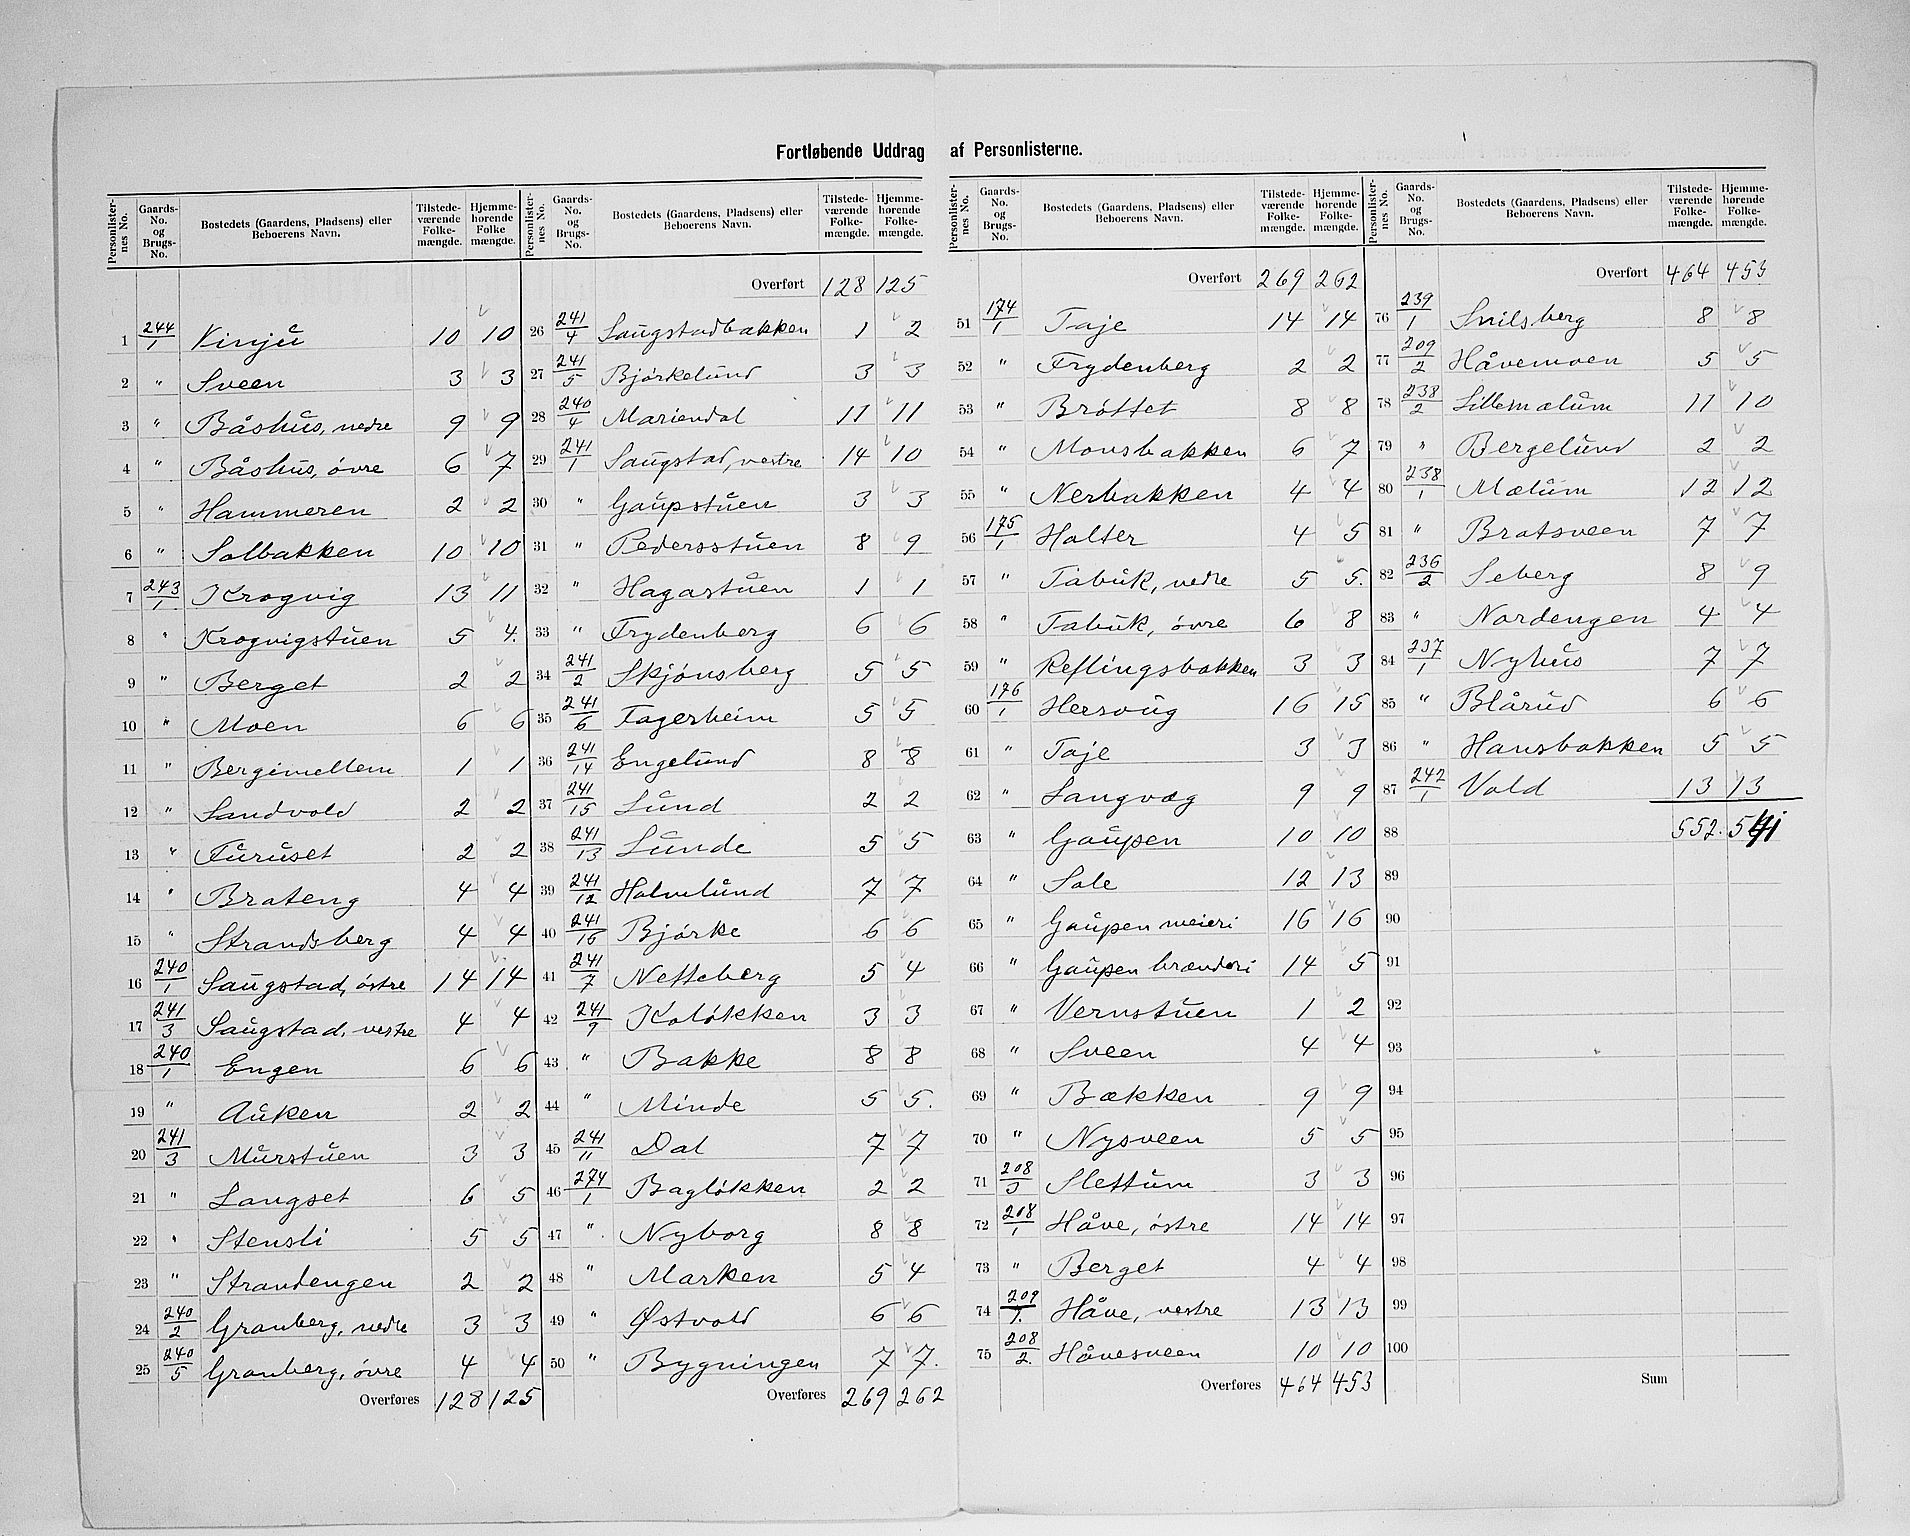 Fortløbende Uddrag af Personlisterne.
Personlister-nes No. | Gaards-No. og Brugs-No. | Bostedets (Gaardens, Pladsens) eller Beboerens Navn. | Tilstede-værende Folke-mængde. | Hjemme-hørende Folke mængde.
1 244/1 Kinju 10 10
2 " Sveen 3 3
3 " Båshus, nedre 9 9
4 " Båshus, övre 6 7
5 " Hammeren 2 2
6 " Solbakken 10 10
7 243/1 Krogvig 13 11
8 " Krogvigstuen 5 4.
9 " Berget 2 2
10 " Moen 6 6
11 " Bergimellem 1 1
12 " Sandvold 2 2
13 " Furuset 2 2
14 " Brateng 4 4
15 " Strandsberg 4 4
16 240/1 Saugstad, östre 14 14
17 241/3 Saugstad, vestre 4 4
18 240/1 Engen 6 6
19 " Auken 2 2
20 241/3 Murstuen 3 3
21 " Langset 6 5
22 " Stensli 5 5
23 " Strandengen 2 2
24 240/2 Granberg, nedre 3 3
25 240/5 Granberg, övre 4 4
Overføres 128 125
Personlister-nes No. | Gaards-No. og Brugs-No. | Bostedets (Gaardens, Pladsens) eller Beboerens Navn. | Tilstede-værende Folke-mængde. | Hjemme-hørende Folke-mængde.
Overført 128 125
26 241/4 Saugstadbakken 1 2
27 241/5 Björkelund 3 3
28 240/4 Mariendal 11 11
29 241/1 Saugstad, vestre 14 10
30 " Gaupstuen 3 3
31 " Pedersstuen 8 9
32 " Hagastuen 1 1
33 " Frydenberg 6 6
34 241/2 Skjönsberg 5 5
35 241/6 Fagerheim 5 5
36 241/14 Engelund 8 8
37 241/15 Lund 2 2
38 241/13 Lunde 5 5
39 241/12 Holmlund 7 7
40 241/16 Björke 6 6
41 241/7 Netteberg 5 4
42 241/9 Kolökken 3 3
43 " Bakke 8 8
44 " Minde 5 5.
45 241/11 Dal 7 7
46 274/1 Baglökken 2 2
47 " Nyborg 8 8
48 " Marken 5 4
49 " Østvold 6 6
50 " Bygningen 7 7.
Overføres 269 262
Personlister-nes No. | Gaards-No. og Brugs-No. | Bostedets (Gaardens, Pladsens) eller Beboerens Navn. | Tilstede-værende Folke-mængde. | Hjemme-hørende Folke-mængde.
Overført 269 262
51 174/1 Taje 14 14
52 " Frydenberg 2 2
53 " Bröttet 8 8
54 " Monsbakken 6 7
55 " Nerbakken 4 4
56 175/1 Halter 4 5
57 " Tabuk, nedre 5 5.
58 " Tabuk, övre 6 8
59 " Reflingsbakken 3 3
60 176/1 Hersoug 16 15
61 " Taje 3 3
62 " Langvæg 9 9
63 " Gaupen 10 10
64 " Sole 12 13
65 " Gaupen meieri 16 16
66 " Gaupen brænderi 14 5
67 " Vernstuen 1 2
68 " Sveen 4 4
69 " Bækken 9 9
70 " Nysveen 5 5
71 208/3 Slettum 3 3
72 208/1 Håve, östre 14 14
73 " Berget 4 4
74 209/1. Håve, vestre 13 13
75 208/2. Håvesveen 10 10
Overføres 464 453
Personlister-nes No. | Gaards-No. og Brugs-No. | Bostedets (Gaardens, Pladsens) eller Beboerens Navn. | Tilstede-værende Folke-mængde. | Hjemme-hørende Folke-mængde.
Overført 464 453
76 239/1 Snilsberg 8 8
77 209/2 Håvemoen 5 5
78 238/2 Lillemælum 11 10
79 " Bergelund 2 2
80 238/1 Mælum 12 12
81 " Bratsveen 7 7
82 236/2 Seberg 8 9
83 " Nordengen 4 4
84 237/1 Nyhus 7 7
85 " Blårud 6 6
86 " Hansbakken 5 5
87 242/1 Vold 13 13
88 552. 541
89
90
91
92
93
94
95
96
97
98
99
100
Sum